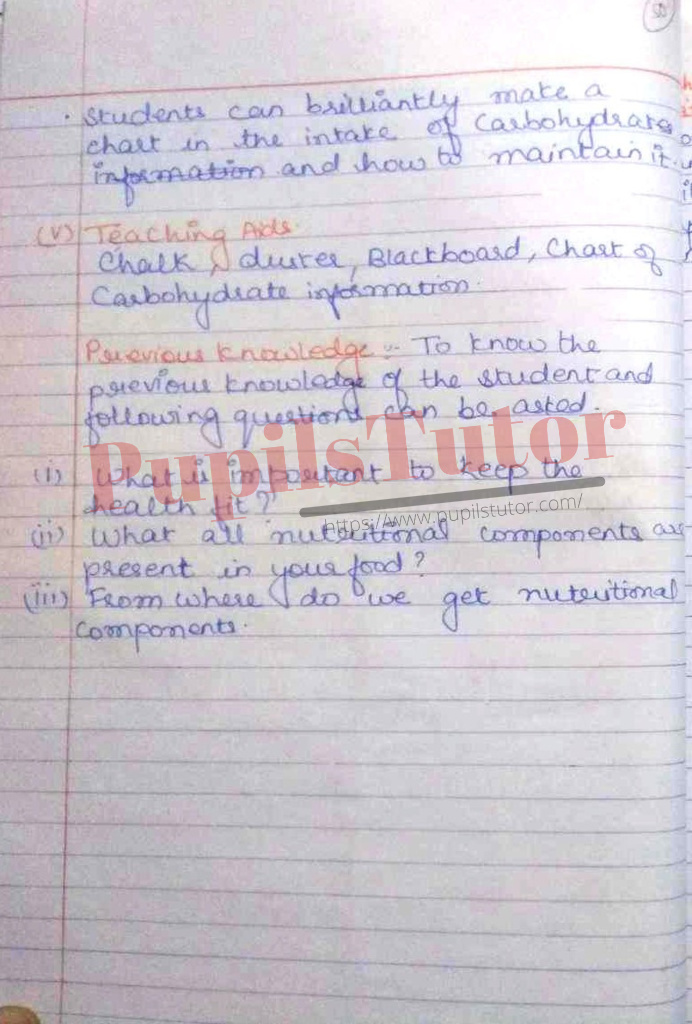 50
. Students can brilliantly make a
chart in the intake of Carbohydrate
information and how to maintain it.
(V) Teaching Aids.
Chalk, duster, Blackboard, Chart of
Carbohydrate information.
Previous Knowledge :- To know the
previous knowledge of the student and
following questions can be asted.
PupilsTutor
(i) What is important to keep the
health fit?
https://www.pupilstutor.com/
(ii) What all nutritional components are
present in your food?
(iii) From where do we get nutritional
components.